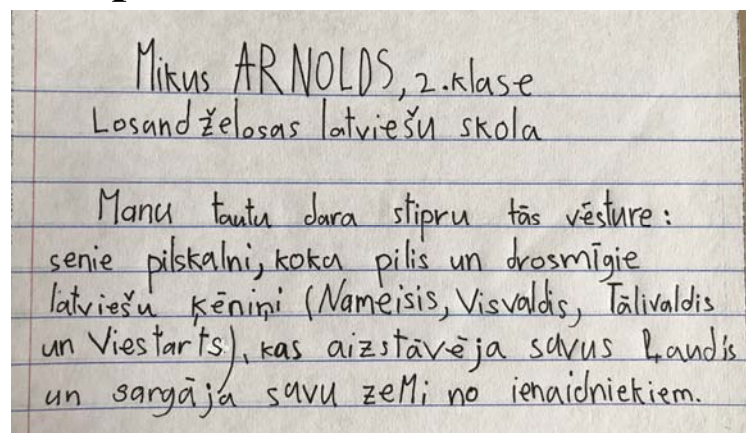 Mikus ARNOLDS, 2.klase
Losandželosas latviešu skola
Manu tautu dara stipru tās vēsture:
senie pilskalni, koka pilis un drosmīgie
latviešu ķēniņi (Nameisis, Visvaldis, Tālivaldis
un Viestarts), kas aizstāvēja savus Ļaudis
un sargāja savu zeMi no ienaidniekiem.